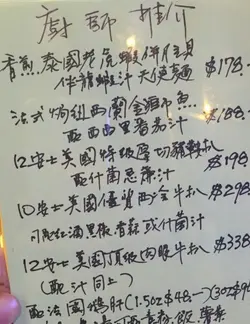 廚師推介
香煎泰國老虎蝦伴帶子
伴龍蝦汁天使麵 $178.-
法式焗紐西蘭金鯧魚
配西西里番茄汁 $188.-
12安士美國特級厚切豬鞍扒
配什菌忌廉汁 $198
10安士美國優質西冷牛扒 $298
可配紅酒黑椒香蒜或什菌汁
12安士美國頂級肉眼牛扒 $338
(配汁同上)
配法國鵝肝(1.5oz $48.-)(3oz $9